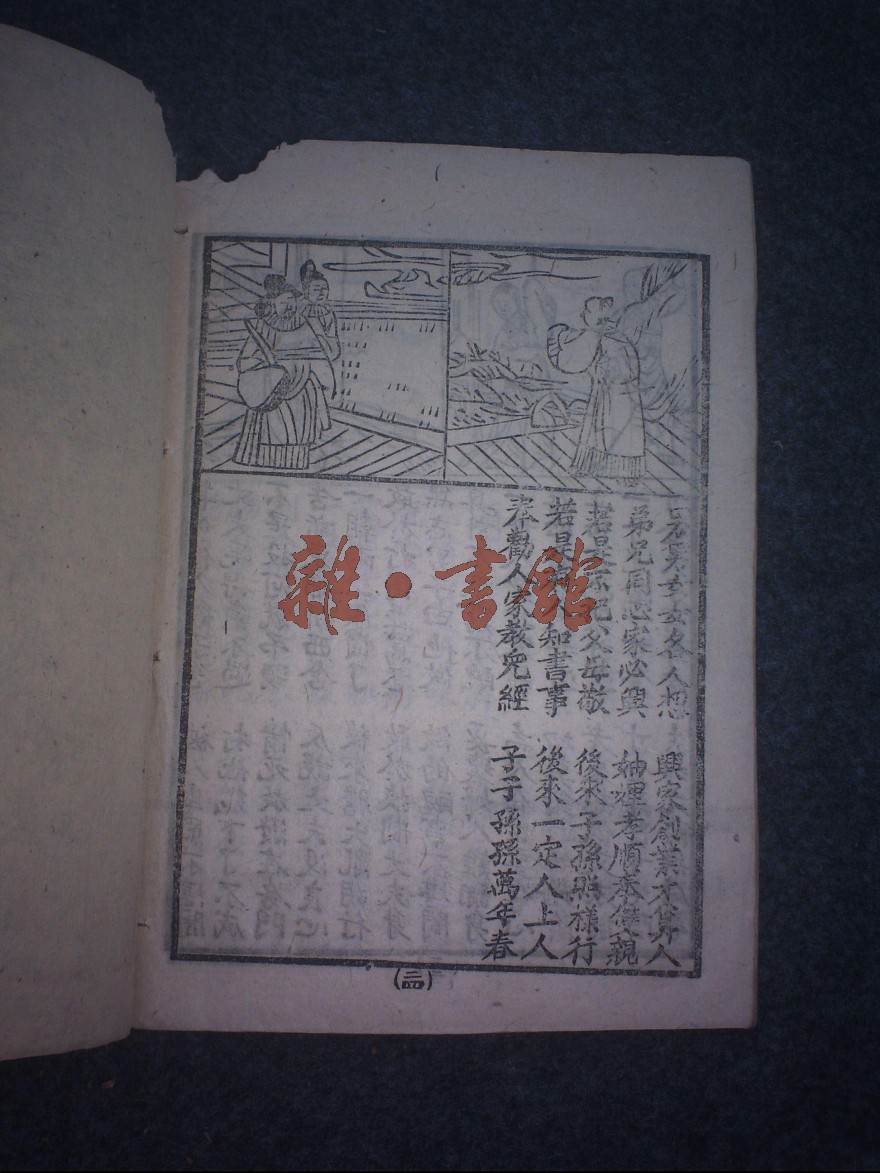 男女各人想 興家創業才算人
弟兄同心家必興 妯娌孝順奉雙親
若是 父母敬 後來子孫照樣行
若是 知書事 後來一定人上人
奉勸人家教兒經 子子孫孫萬年春
雜·書館